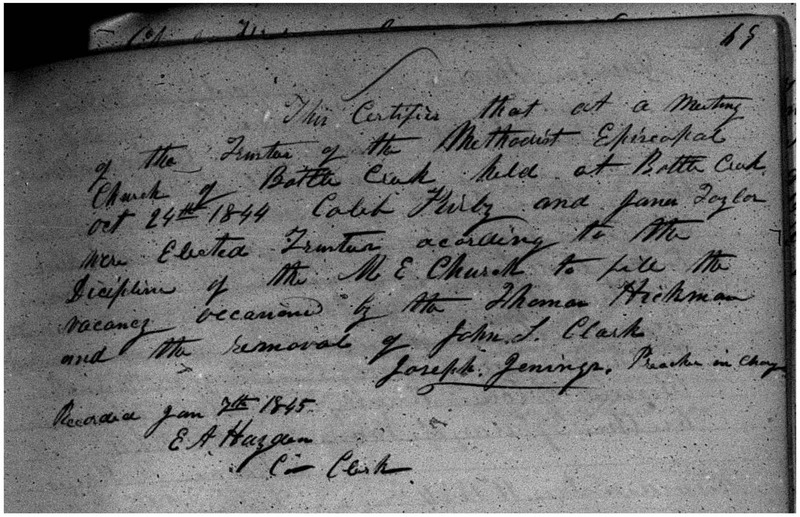 69
This Certifies that at a Meeting
of the Trustees of the Methodist Episcopal
Church of Battle Creek held at Battle Creek
Oct 24th 1844 Caleb Kirby and James Taylor
were Elected Trustees acording to the
Dicipline of the M E Church to fill the
vacancy occasioned by the Thomas Hickman
and the removal of John S. Clark
Joseph Jenings, Preacher in Charge
Recorded Jan 7th 1845
E A Hayden
Clerk